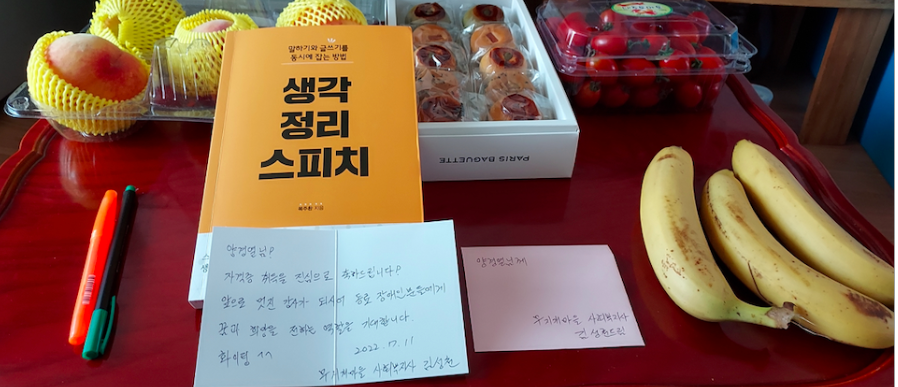 말하기와 글쓰기를
동시에 잡는 방법
생각
정리
스피치
복주환 지음
PARIS BAGUETTE
양경열님?
자격증 취득을 진심으로 축하드립니다?
앞으로 멋진 강사가 되시어 동료 장애인분들에게
꿈과 희망을 전하는 역할을 기대합니다.
화이팅 ^^
2022. 7. 11
무지개마을 사회복지사 김성현
양경열님께
무지개마을 사회복지사
김성현드림